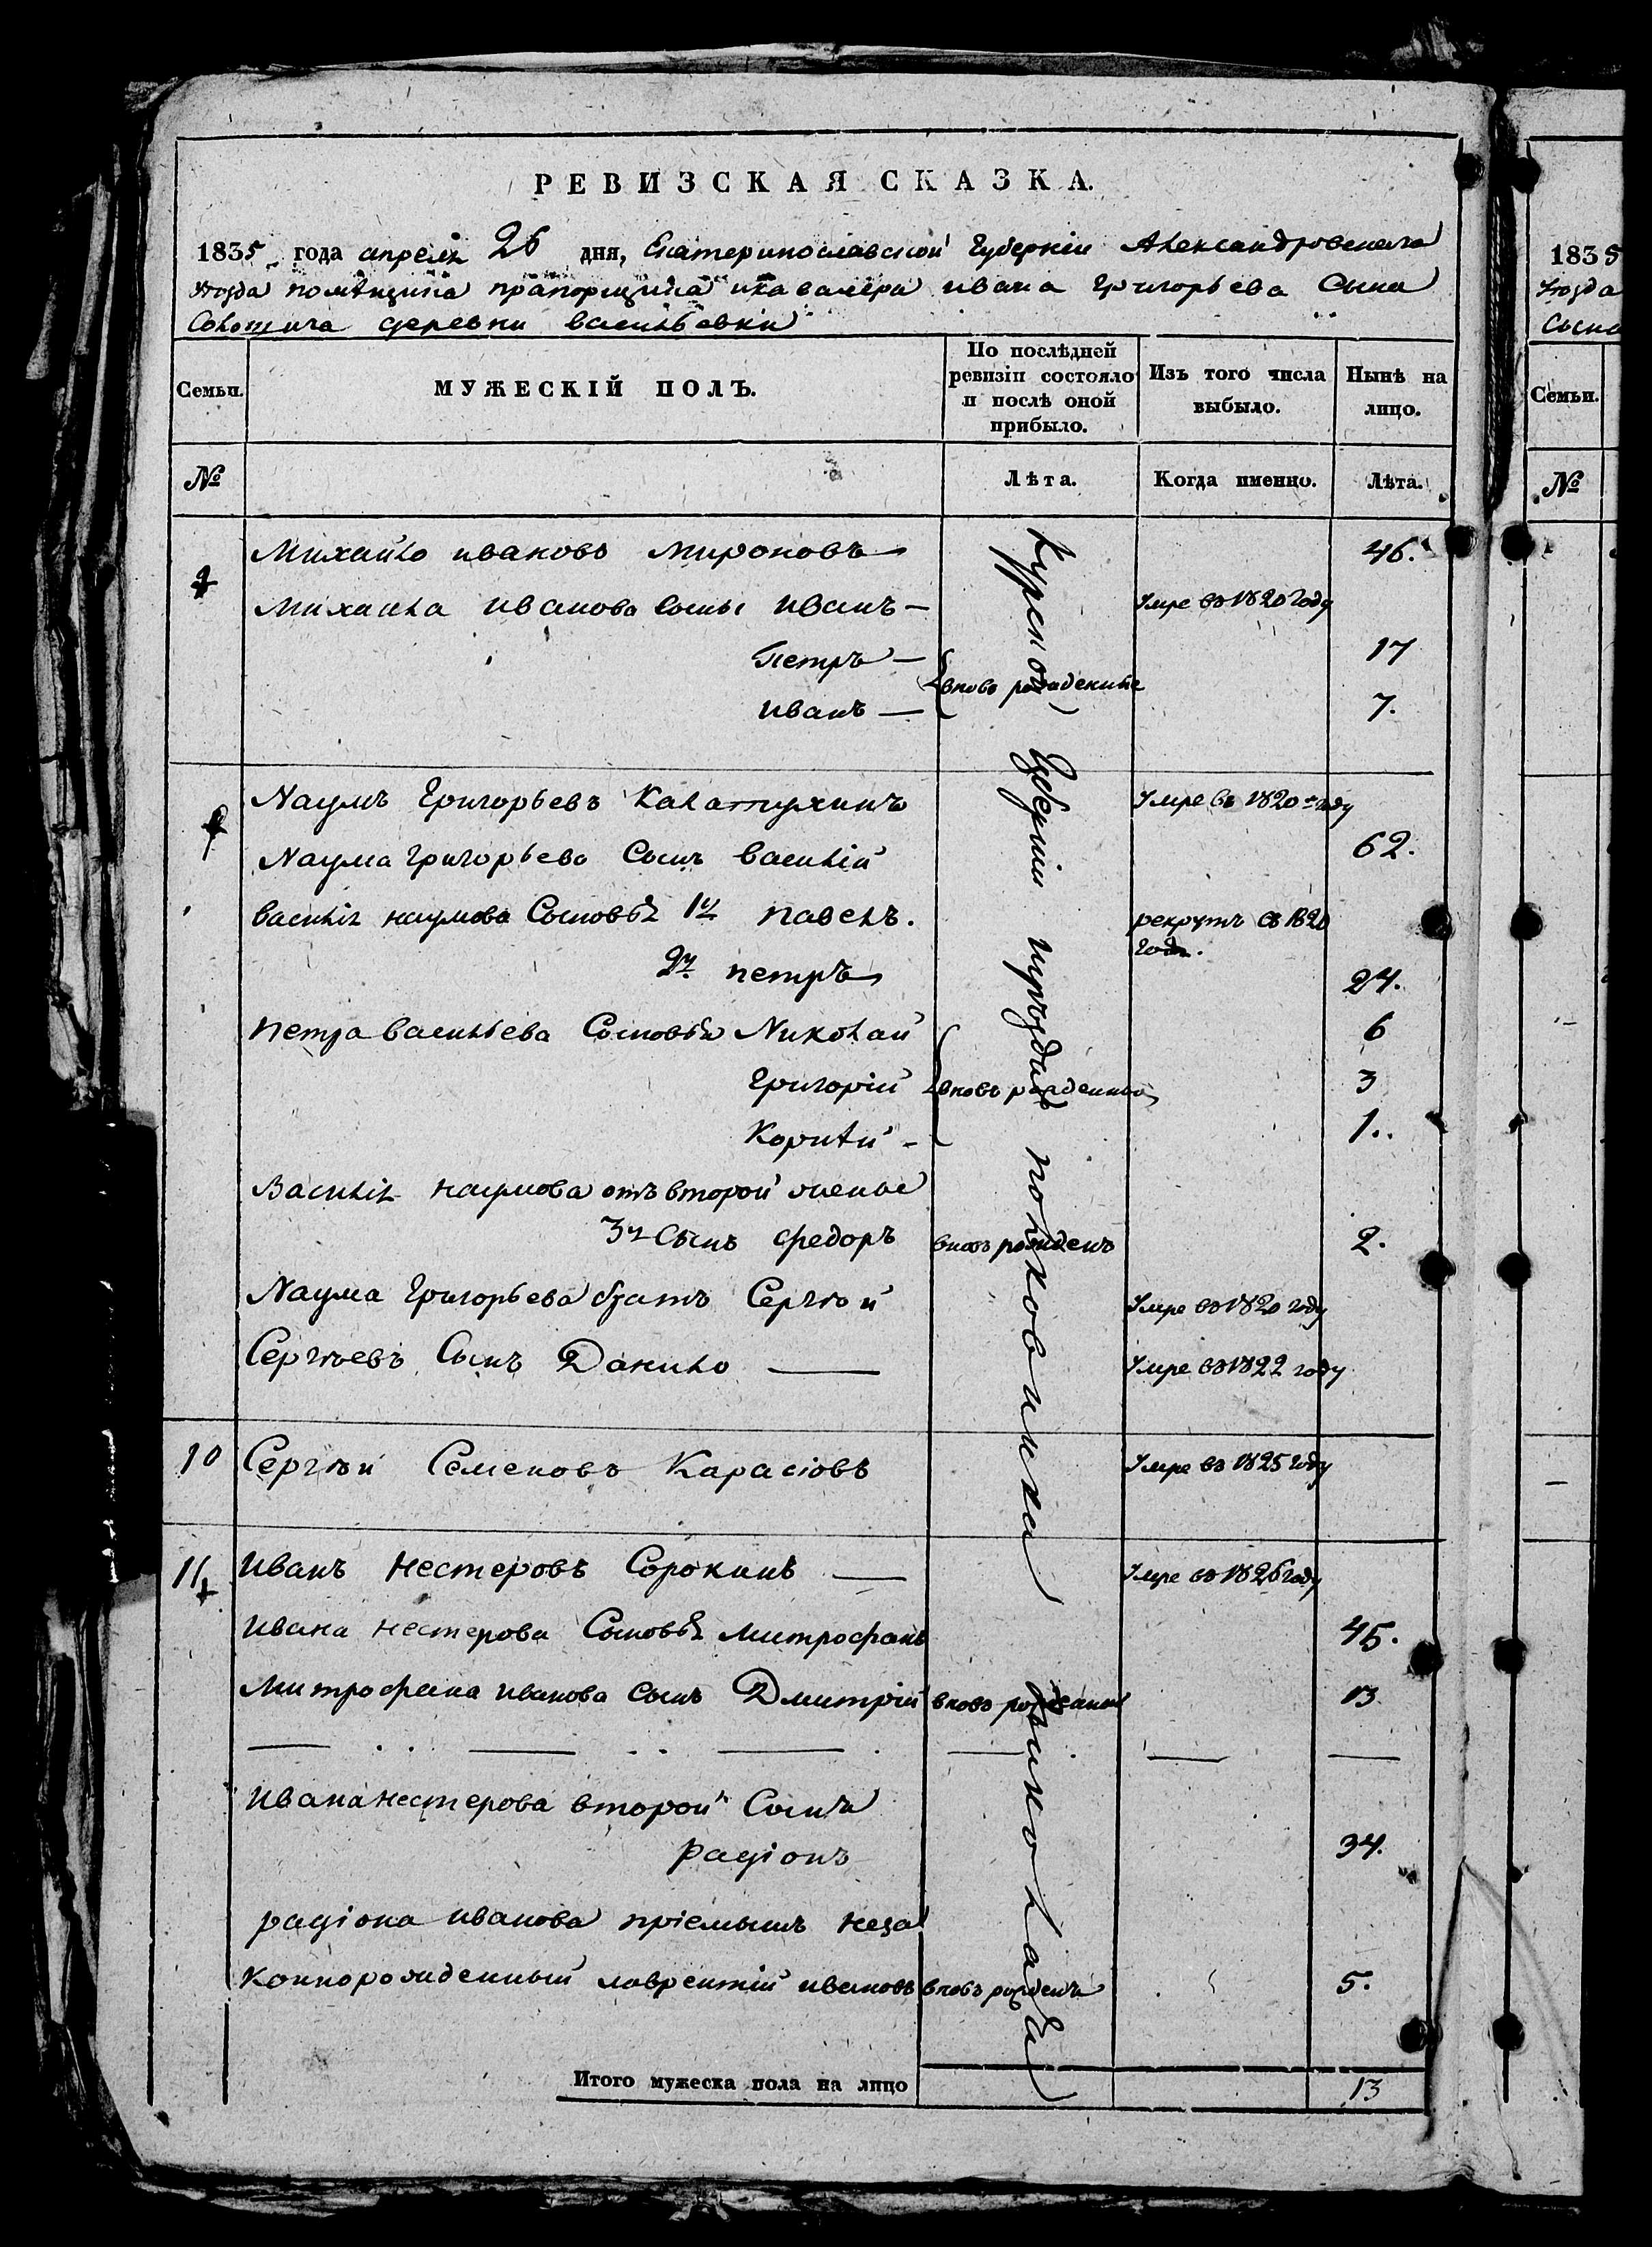 РЕВИЗСКАЯ СКАЗКА.
1835 года апреля 26 дня, Екатеринославской Губерніи Александровскаго
уѣзда помѣщика прапорщика и кавалера ивана григорьева Сына
деревни васильевки
Семьи.
МУЖЕСКІЙ ПОЛЪ.
По послѣдней ревизіи состояло и послѣ оной прибыло.
Изъ того числа выбыло.
Нынѣ на лицо.
№
Лѣта.
Когда именно.
Лѣта.
Михайло ивановъ мироновъ 46.
Михаила иванова сыны иванъ — Умре въ 1820 году
петръ — 17
вновь рожденные
иванъ — 7.
Наумъ Григорьевъ Калатухинъ Умре въ 1820 году
Наума григорьева Сынъ василій 62.
василія наумова Сыновья 1й павелъ. рекрутъ въ 1820 году.
2й петръ 24.
петра васильева Сыновья Николай 6
Григорій вновь рожденные 3
1.
Василія наумова отъ второй жены
3й Сынъ федоръ вновь рожденъ 2.
Наума Григорьева братъ Сергѣй Умре въ 1820 году
Сергѣевъ Сынъ Данило — Умре въ 1822 году
10 Сергѣй Семеновъ Карасіовъ Умре въ 1825 году
11 Иванъ Нестеровъ Сорокинъ — Умре въ 1826 году
Ивана нестерова Сыновья митрофанъ 45.
Митрофана иванова сынъ Дмитрій вновь 13
Ивана нестерова второй Сынъ
радіонъ 34.
радіона иванова пріемышъ неза
коннорожденный лаврентій ивановъ вновь рожденъ 5.
Курской Губерніи
полковника
николая
Итого мужеска пола на лицо 13
1835
уѣзда
Сына
Семьи.
№